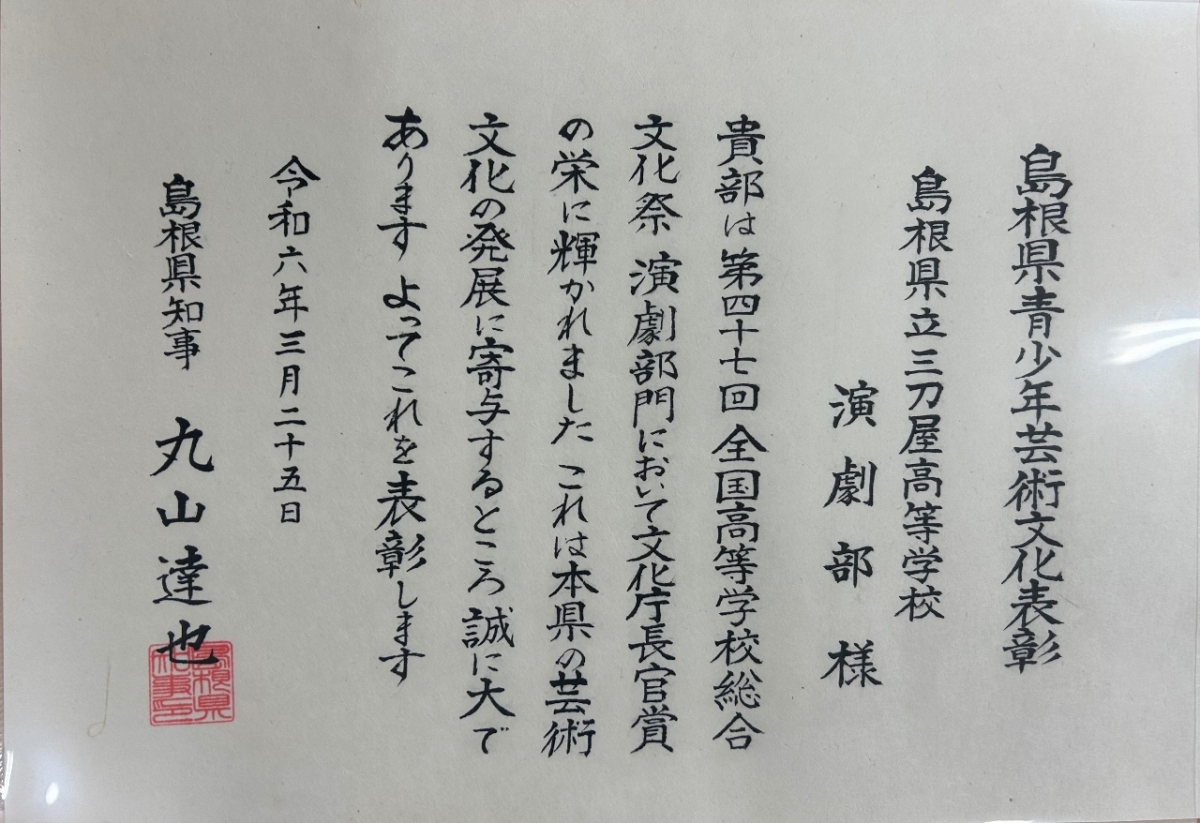 島根県青少年芸術文化表彰
島根県立三刀屋高等学校
演劇部様
貴部は第四十七回全国高等学校総合
文化祭 演劇部門において文化庁長官賞
の栄に輝かれました これは本県の芸術
文化の発展に寄与するところ 誠に大で
あります よってこれを表彰します
令和六年三月二十五日
島根県知事 丸山達也
島根県
知事之印